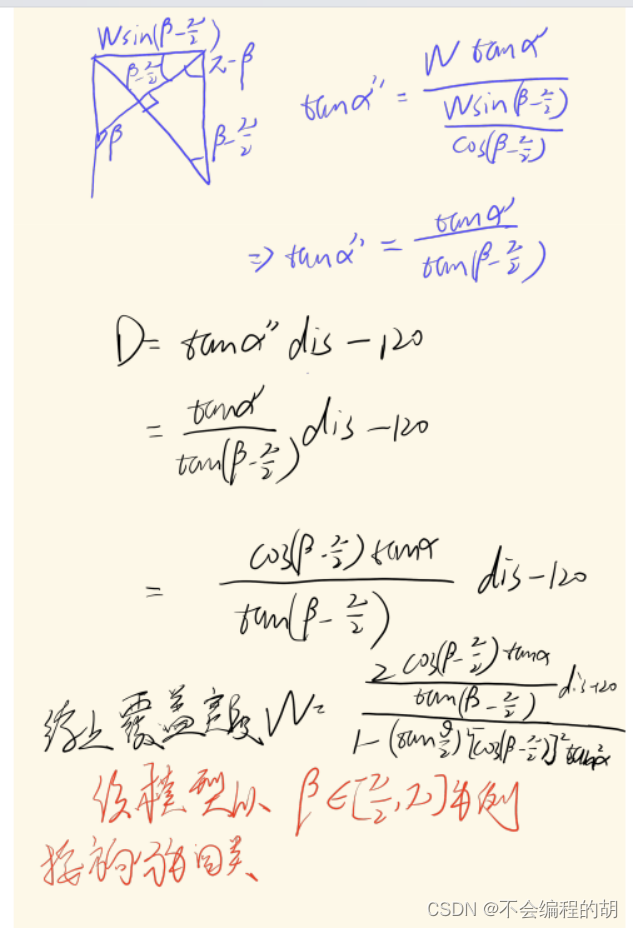 Wsin(β-π/2)
β-π/2 π-β
β β-π/2
tanα'' = W tanα' / (Wsin(β-π/2) / cos(β-π/2))
=> tanα'' = tanα' / tan(β-π/2)
D= tanα'' dis-120
= tanα' / tan(β-π/2) dis-120
= cos(β-π/2)tanα / tan(β-π/2) dis-120
覆盖宽度W= (2 cos(β-π/2)tanα / tan(β-π/2) dis-120) / (1-(tan θ/2)²[cos(β-π/2)]²tan²α)
模型以 β∈[π/2,π]为例
CSDN @不会编程的胡